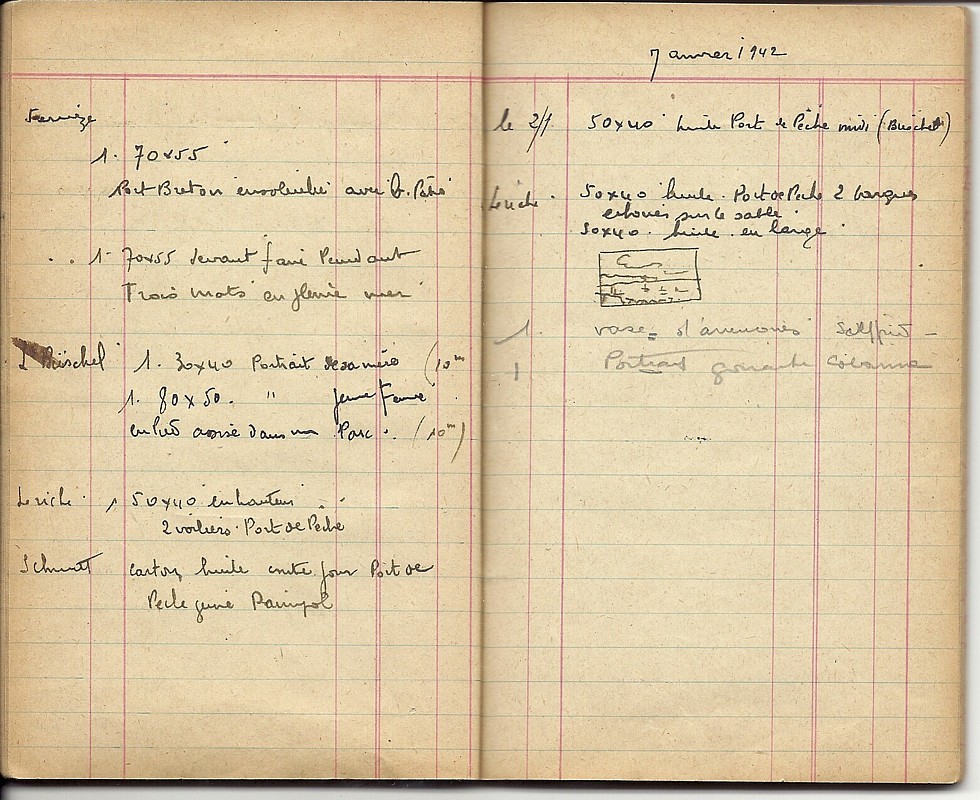 1. 70x55
Port Breton ensoleillé avec b. Pêche
1 70x55 devant faire Pendant
Trois mats en pleine mer
Büschel 1. 30x40 Portrait de sa mère (10 m)
1. 80x50. " jeune Femme
en Pied assise dans un Parc. (10 m)
Leriche 1 50x40 en hauteur
2 voiliers. Port de Pêche
Schmitt carton, huile contre jour Port de
Peche genre Paimpol
7 anvier 1942
le 2/1 50x40 huile Port de Pêche midi (Büschel)
Leriche. 50x40 huile. Port de Peche 2 barques
echouées sur le sable.
50x40. huile. en large.
1. vase d'anemones
1 Portrait